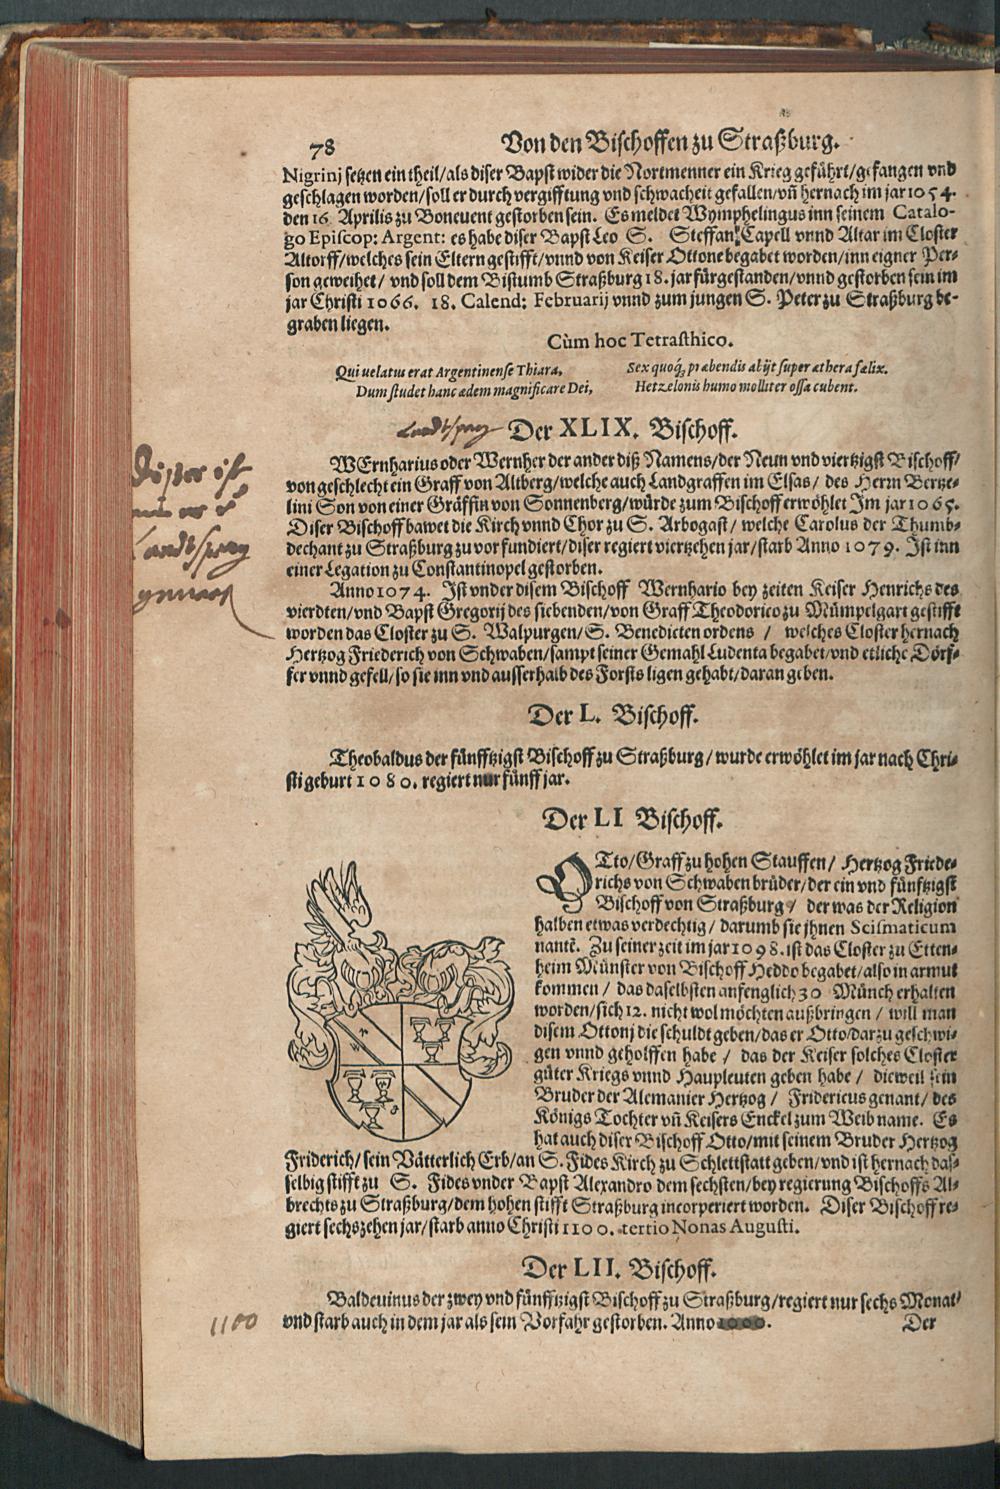 78 Von den Bischoffen zu Straßburg.
Nigrinj setzen ein theil/als diser Bapst wider die Nortmenner ein Krieg geführt/gefangen vnd
geschlagen worden/soll er durch vergifftung vnd schwacheit gefallen/vñ hernach im jar 1054.
den 16. Aprilis zu Boneuent gestorben sein. Es meldet Wymphelingus inn seinem Catalo-
go Episcop: Argent: es habe diser Bapst Leo S. Steffans Capell vnnd Altar im Closter
Altorff/welches sein Eltern gestifft/vnnd von Keiser Ottone begabet worden/inn eigner Per-
son geweihet/ vnd soll dem Bistumb Straßburg 18. jar fürgestanden/vnnd gestorben sein im
jar Christi 1066. 18. Calend: Februarij vnnd zum jungen S. Peter zu Straßburg be-
graben liegen.
Cùm hoc Tetrasthico.
Qui uelatus erat Argentinense Thiara,
Dum studet hanc ædem magnificare Dei,
Sex quoq́; præbendis abijt super æthera fælix.
Hetzelonis humo molliter ossa cubent.
Landtsperg Der XLIX. Bischoff.
Diser ist
ein
Landtsperg
gewesen
WErnharius oder Wernher der ander diß Namens/der Neun vnd viertzigst Bischoff/
von geschlecht ein Graff von Altberg/welche auch Landgraffen im Elsas/ des Herrn Bertze-
lini Son von einer Gräffin von Sonnenberg/würde zum Bischoff erwöhlet Im jar 1065.
Diser Bischoff bawet die Kirch vnnd Chor zu S. Arbogast/ welche Carolus der Thumb-
dechant zu Straßburg zuvor fundiert/diser regiert viertzehen jar/starb Anno 1079. Ist inn
einer Legation zu Constantinopel gestorben.
Anno 1074. Ist vnder disem Bischoff Wernhario bey zeiten Keiser Henrichs des
vierdten/vnd Bapst Gregorij des siebenden/von Graff Theodorico zu Mümpelgart gestifft
worden das Closter zu S. Walpurgen/S. Benedicten ordens / welches Closter hernach
Hertzog Friederich von Schwaben/sampt seiner Gemahl Ludenta begabet/vnd etliche Dörf-
fer vnnd gefell/so sie inn vnd ausserhalb des Forsts ligen gehabt/daran geben.
Der L. Bischoff.
Theobaldus der fünfftzigst Bischoff zu Straßburg/wurde erwöhlet im jar nach Chri-
sti geburt 1080. regiert nur fünff jar.
Der LI Bischoff.
OTto/Graff zu hohen Stauffen/ Hertzog Friede-
richs von Schwaben brüder/der ein vnd fünftzigst
Bischoff von Straßburg/ der was der Religion
halben etwas verdechtig/ darumb sie jhnen Scismaticum
nantē. Zu seiner zeit im jar 1098. ist das Closter zu Etten-
heim Münster von Bischoff Heddo begabet/also in armut
kommen/ das daselbsten anfenglich 30 Münch erhalten
worden/sich 12. nicht wol möchten außbringen/ will man
disem Ottonj die schuldt geben/das er Otto/darzu geschwi-
gen vnnd geholffen habe / das der Keiser solches Closter
güter Kriegs vnnd Haupleuten geben habe / dieweil sein
Bruder der Alemanier Hertzog / Fridericus genant/ des
Königs Tochter vñ Keisers Enckel zum Weib name. Es
hat auch diser Bischoff Otto/mit seinem Bruder Hertzog
Friderich/sein Vätterlich Erb/an S. Fides Kirch zu Schlettstatt geben/vnd ist hernach das-
selbig stifft zu S. Fides vnder Bapst Alexandro dem sechsten/bey regierung Bischoffs Al-
brechts zu Straßburg/dem hohen stifft Straßburg incorperiert worden. Diser Bischoff re-
giert sechszehen jar/starb anno Christi 1100. tertio Nonas Augusti.
Der LII. Bischoff.
Baldeuinus der zwey vnd fünfftzigst Bischoff zu Straßburg/regiert nur sechs Monat/
1100 vnd starb auch in dem jar als sein Vorfahr gestorben. Anno 1000.
Der